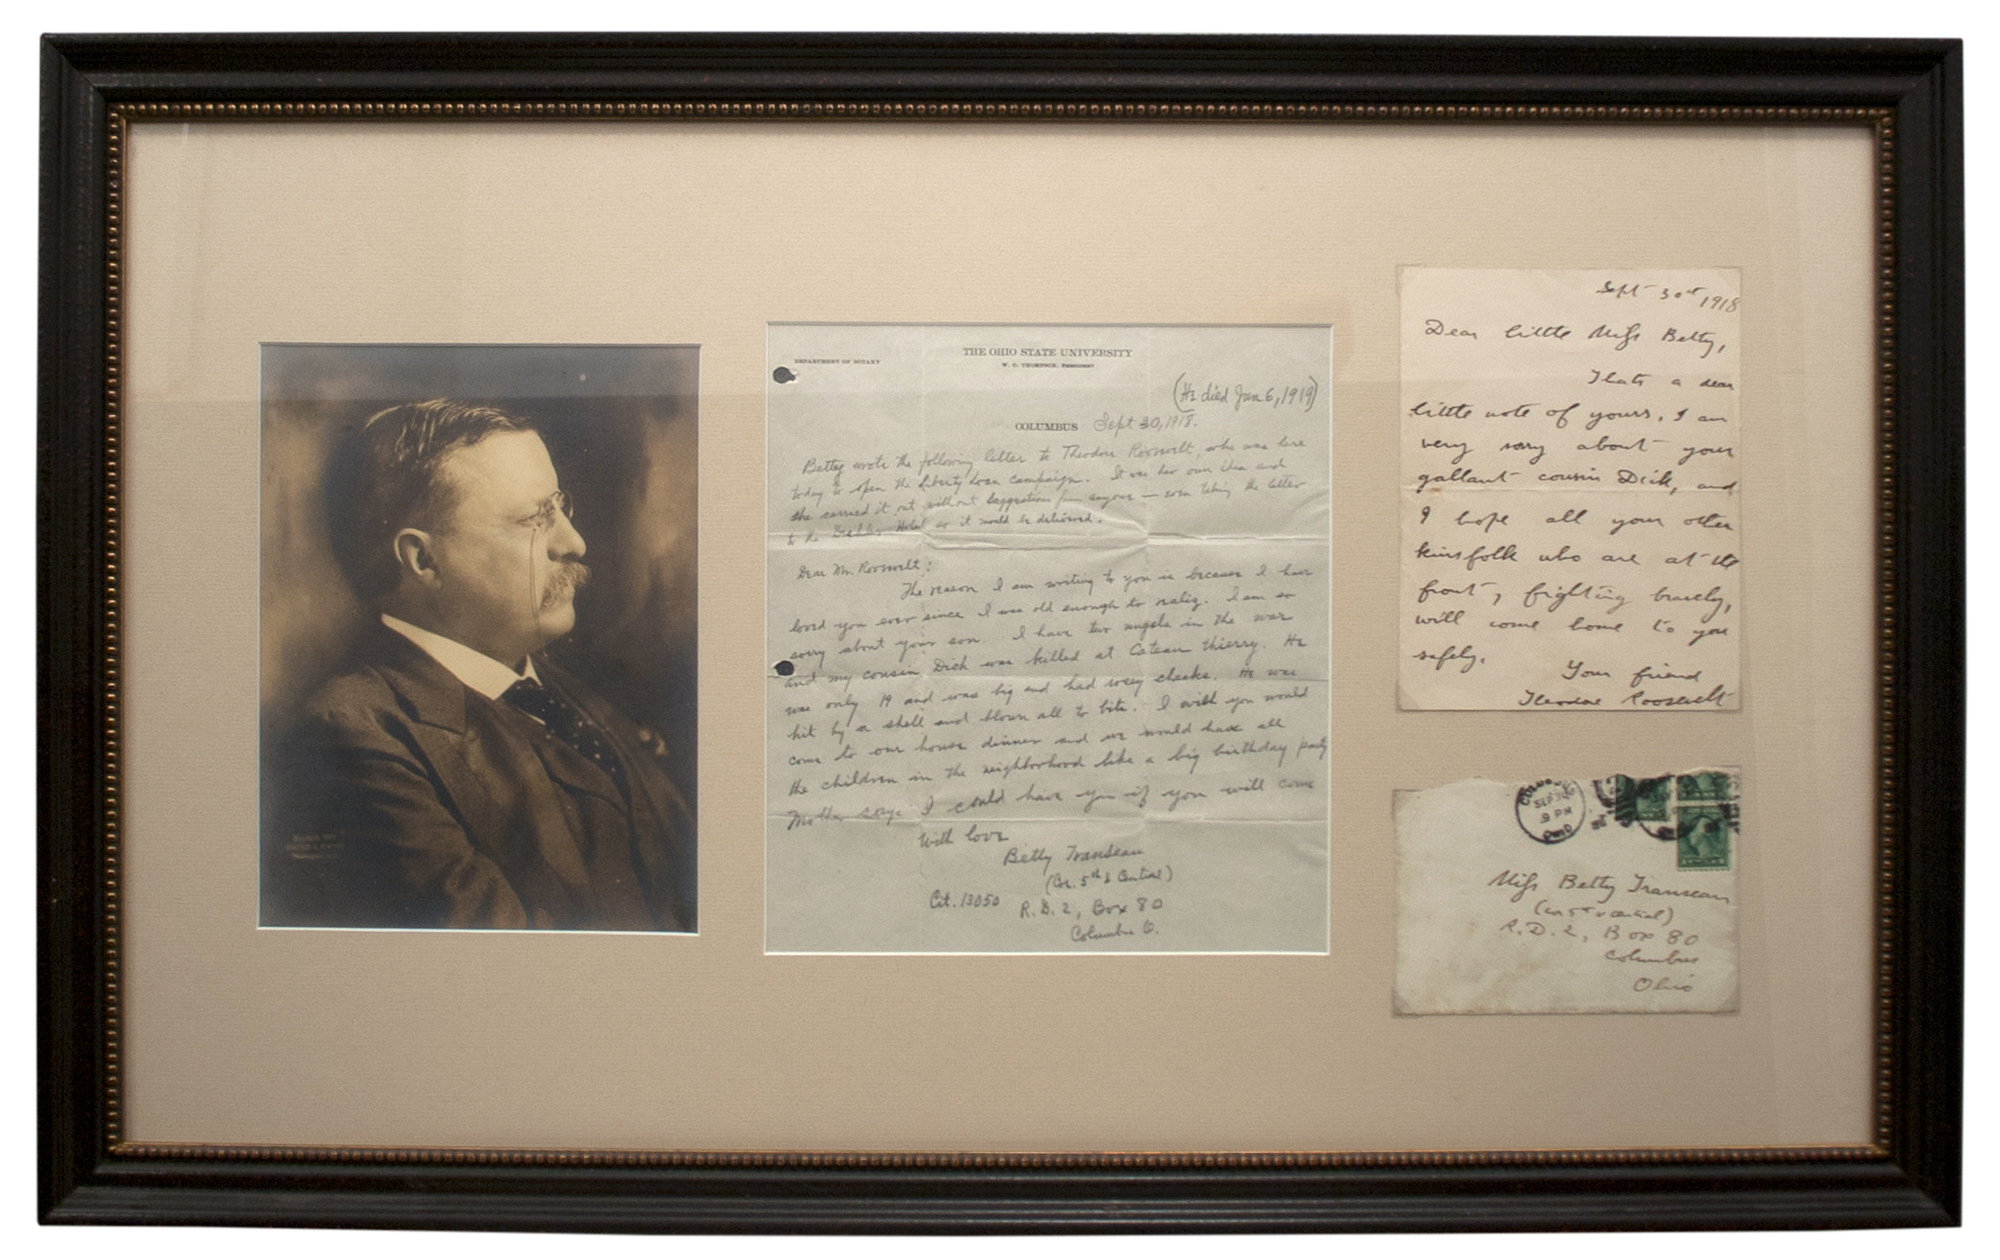 DEPARTMENT OF BOTANY
THE OHIO STATE UNIVERSITY
W. O. THOMPSON, PRESIDENT
(He died Jan 6, 1919)
COLUMBUS Sept 30, 1918.
Betty wrote the following letter to Theodore Roosevelt, who was here
today to open the Liberty Loan campaign. It was her own idea and
she carried it out without suggestion from anyone — even taking the letter
to the Deshler Hotel so it would be delivered.
Dear Mr. Roosevelt:
The reason I am writing to you is because I have
loved you ever since I was old enough to realiz. I am so
sorry about your son. I have two angels in the war
and my cousin Dick was killed at Cateau Thierry. He
was only 19 and was big and had rosey cheeks. He was
hit by a shell and blown all to bits. I wish you would
come to our house dinner and we would have all
the children in the neighborhood like a big birthday party
Mother says I could have you if you will come
With love
Betty Transeau
(Cor. 5th & Central)
Cit. 13050 R.D. 2, Box 80
Columbus O.
Sept 30th 1918
Dear little Miss Betty,
Thats a dear
little note of yours. I am
very sorry about your
gallant cousin Dick, and
I hope all your other
kinsfolk who are at the
front, fighting bravely,
will come home to you
safely.
Your friend
Theodore Roosevelt
COLUMBUS
SEP 30
9 PM
OHIO
Miss Betty Transeau
(cor 5th & Central)
R.D. 2, Box 80
Columbus
Ohio